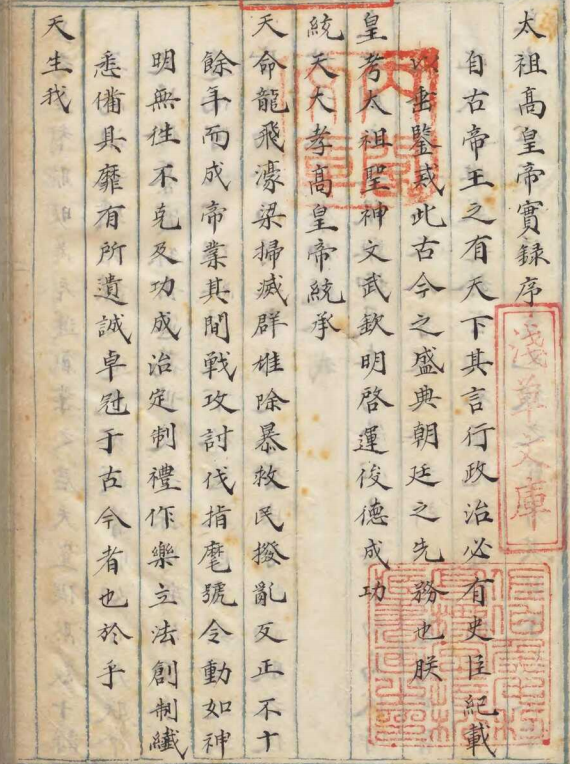 太祖高皇帝實録序
自古帝王之有天下其言行政治必有史臣紀載
以垂鑒戒此古今之盛典朝廷之先務也朕
皇考太祖聖神文武欽明啓運俊德成功
統天大孝高皇帝統承
天命龍飛濠梁掃滅群雄除暴救民撥亂反正不十
餘年而成帝業其間戰攻討伐指麾號令動如神
明無徃不克及功成治定制禮作樂立法創制纎
悉備具靡有所遺誠卓冠于古今者也於乎
天生我
淺草文庫